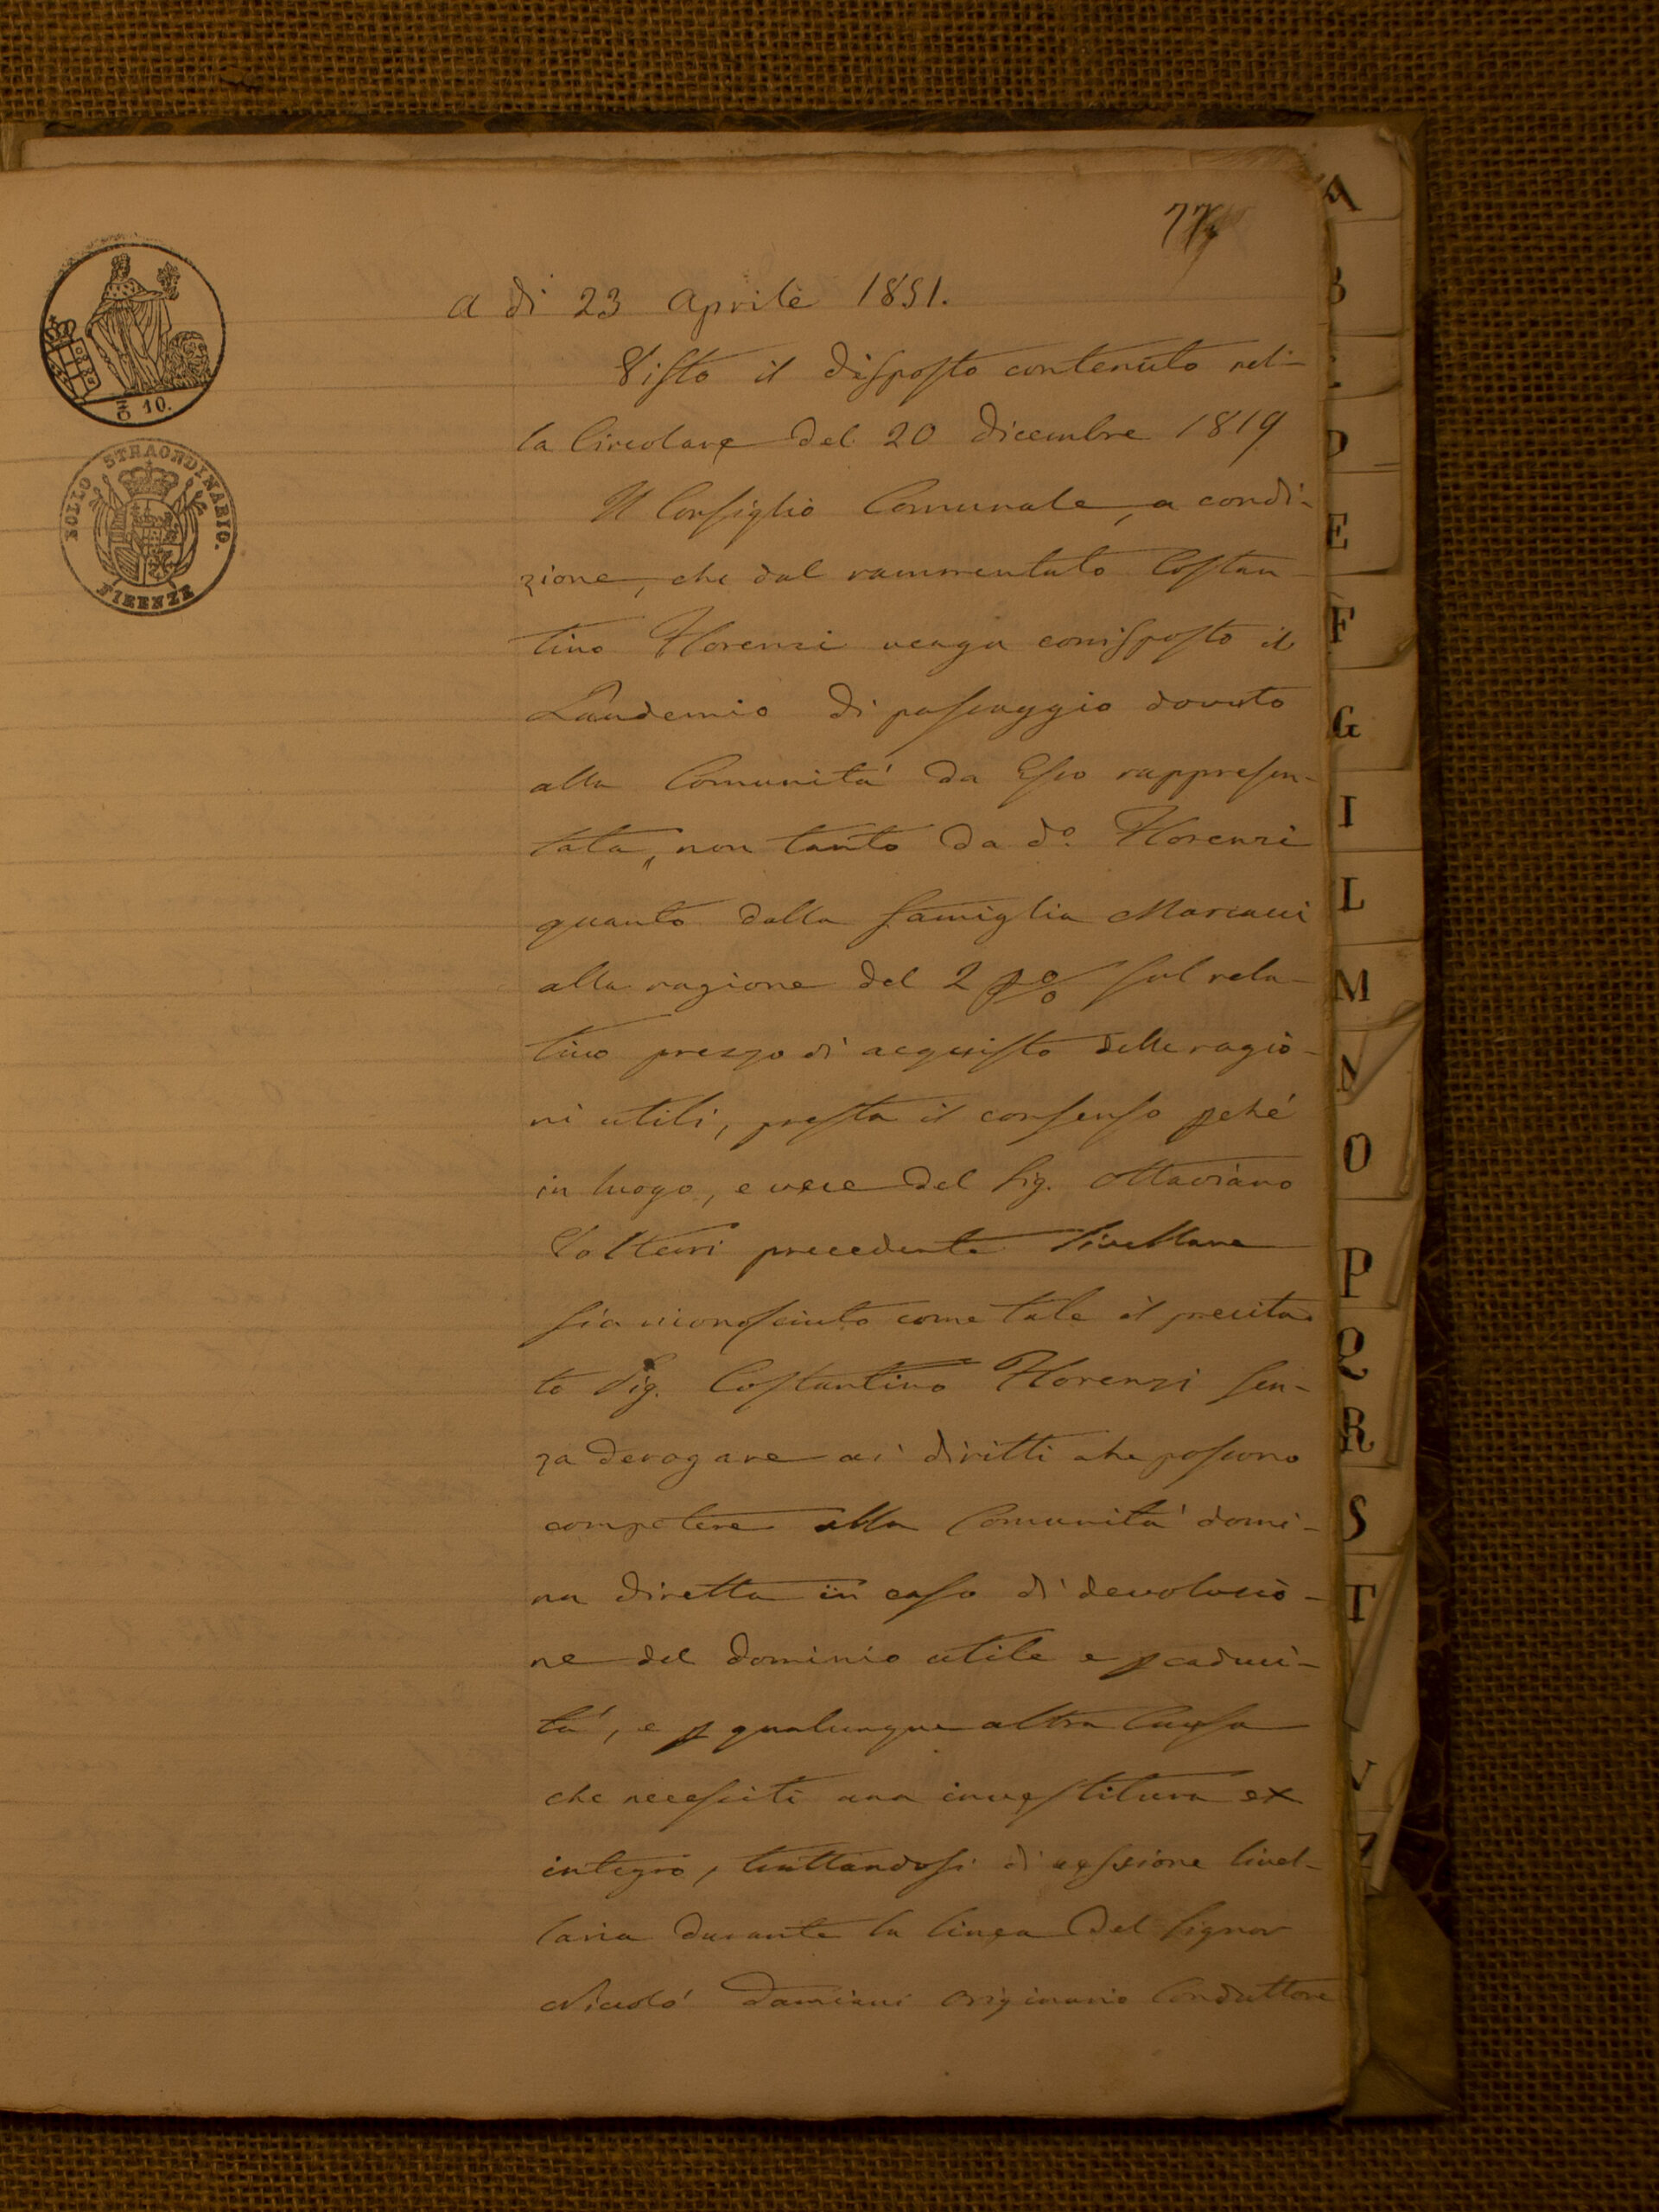 77
a di 23 Aprile 1851.
Visto il disposto contenuto nel-
la Circolare del 20 Dicembre 1819
Il Consiglio Comunale, a condi-
zione, che dal rammentato Costan-
tino Florenzi venga corrisposto il
Laudemio di passaggio dovuto
alla Comunità da Esso rappresen-
tata, non tanto da d.º Florenzi
quanto dalla famiglia Marcacci
alla ragione del 2 p% sul rela-
tivo prezzo di acquisto delle ragio-
ni utili, presta il consenso pché
in luogo, e vece del Sig. Ottaviano
Volterri precedente Livellare
sia riconosciuto come tale il precita-
to Sig. Costantino Florenzi sen-
za derogare ai diritti che possono
competere alla Comunità domi-
na diretta in caso di devoluzio-
ne del dominio utile e p caduci-
tà, e p qualunque altra Causa
che necessiti una investitura ex
integro, trattandosi di cessione livel-
laria durante la linea del Signor
Niccolò Damiani originario Conduttore
10.
BOLLO STRAORDINARIO.
FIRENZE
A
B
D
E
F
G
I
L
M
N
O
P
Q
R
S
T
V
Z